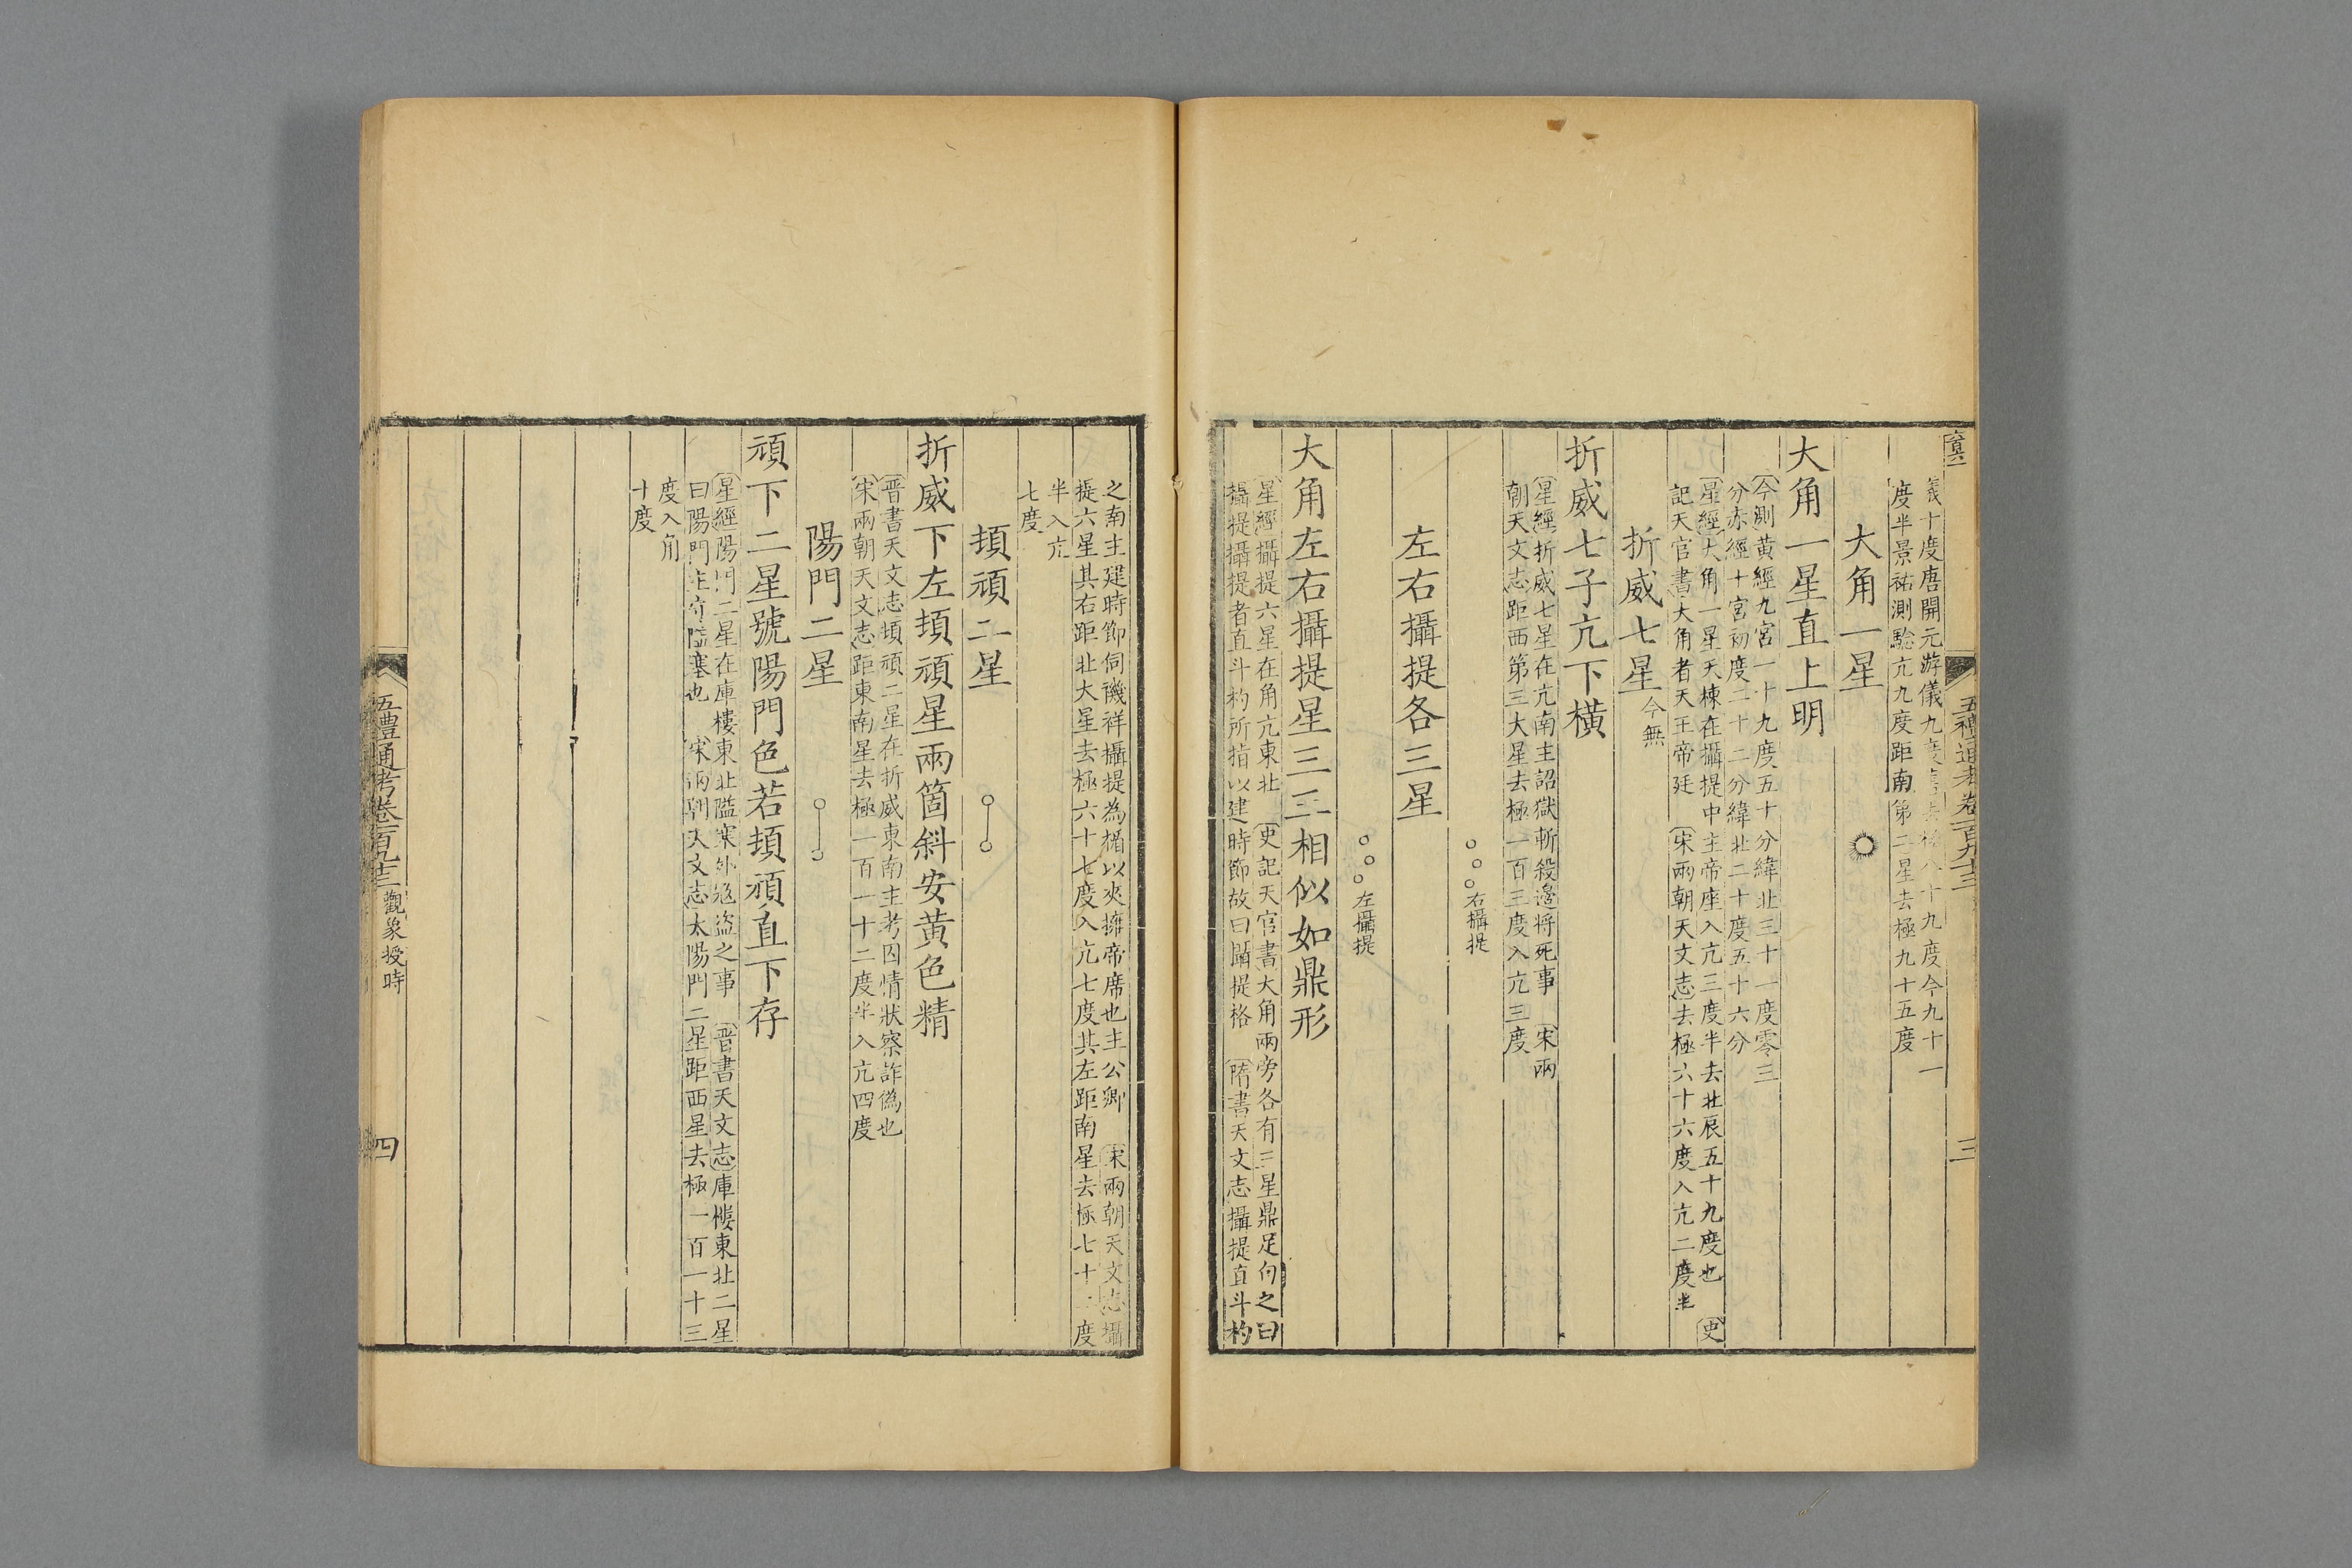 五禮通考卷一百九十三
三
儀十度唐開元游儀九度舊去極八十九度今九十一
度半景祐測驗亢九度距南第二星去極九十五度
大角一星
大角一星直上明
今測黃經九宮一十九度五十分緯北三十一度零三
分赤經十宮初度二十二分緯北二十度五十六分
星經大角一星天棟在攝提中主帝座入亢三度半去北辰五十九度也 史
記天官書大角者天王帝廷 宋兩朝天文志去極六十六度入亢二度半
折威七星今無
折威七子亢下橫
星經折威七星在亢南主詔獄斬殺邊將死事 宋兩
朝天文志距西第三大星去極一百三度入亢三度
右攝提
左右攝提各三星
左攝提
大角左右攝提星三三相似如鼎形
星經攝提六星在角亢東北 史記天官書大角兩旁各有三星鼎足句之曰
攝提攝提者直斗杓所指以建時節故曰攝提格 隋書天文志攝提直斗杓
之南主建時節伺禨祥攝提為楯以夾擁帝席也主公卿 宋兩朝天文志攝
提六星其右距北大星去極六十七度入亢七度其左距南星去極七十二度
半入亢
七度
頓頑二星
折威下左頓頑星兩箇斜安黃色精
晉書天文志頓頑二星在折威東南主考囚情狀察詐偽也
宋兩朝天文志距東南星去極一百一十二度半入亢四度
陽門二星
頑下二星號陽門色若頓頑直下存
星經陽門二星在庫樓東北隘塞外寇盜之事 晉書天文志庫樓東北二星
曰陽門主守隘塞也 宋兩朝天文志太陽門二星距西星去極一百一十三
度入角
十度
五禮通考卷一百九十三 觀象授時
四